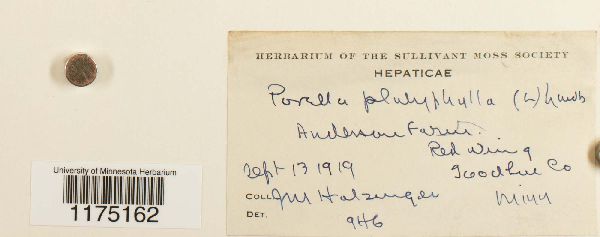 University of Minnesota Herbarium
1175162
HERBARIUM OF THE SULLIVANT MOSS SOCIETY
HEPATICAE
Porella platyphylla (L) Lindb
Anderson Farm.
Red Wing
Sept 13 1919 Goodhue Co
COLL. JM Holzinger Minn
DET. 9H6